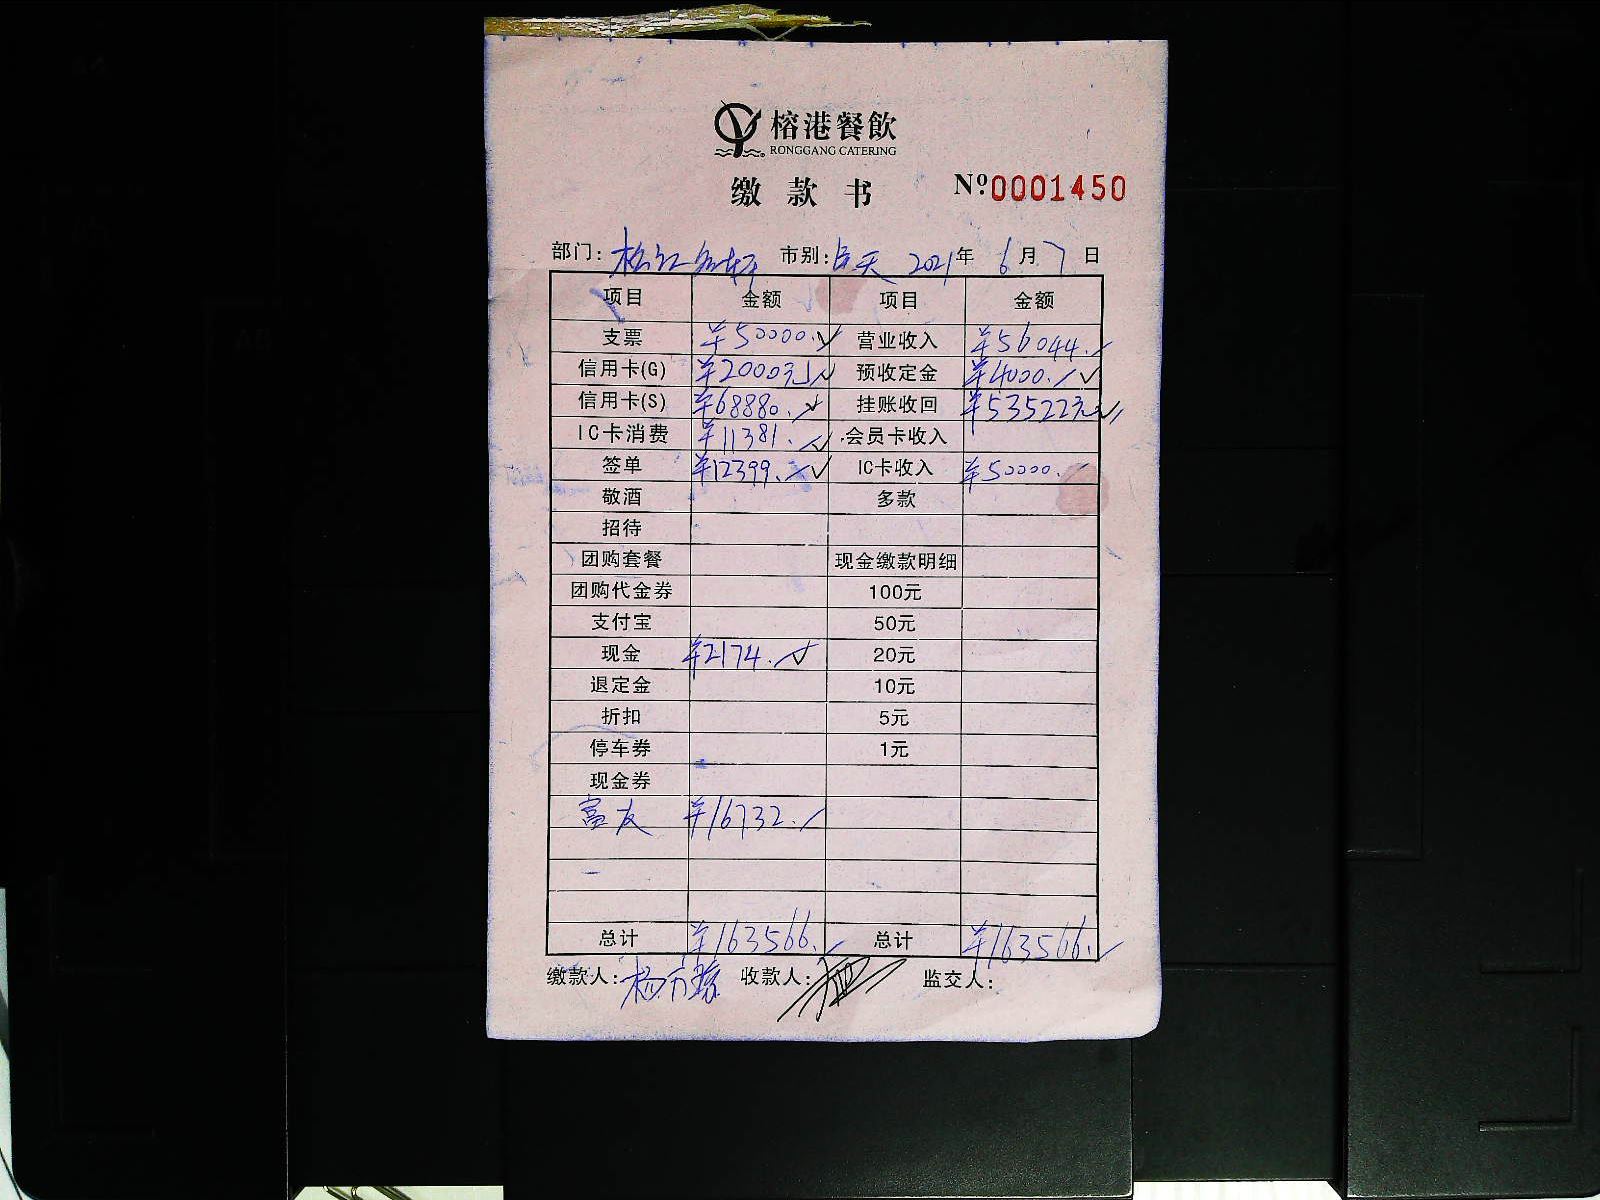 榕港餐飲
RONGGANG CATERING
缴款书 №0001450
部门: 松江名轩 市别: 白天 2021年6月7日
项目 金额 项目 金额
支票 ¥50000. 营业收入 ¥56044.
信用卡(G) ¥2000元 预收定金 ¥4000.
信用卡(S) ¥68880. 挂账收回 ¥53522元
IC卡消费 ¥11381. 会员卡收入
签单 ¥12399. IC卡收入 ¥50000.
敬酒 多款
招待
团购套餐 现金缴款明细
团购代金券 100元
支付宝 50元
现金 ¥2174. 20元
退定金 10元
折扣 5元
停车券 1元
现金券
富友 ¥16732.
总计 ¥163566. 总计 ¥163566.
缴款人: 杨 收款人: 监交人: